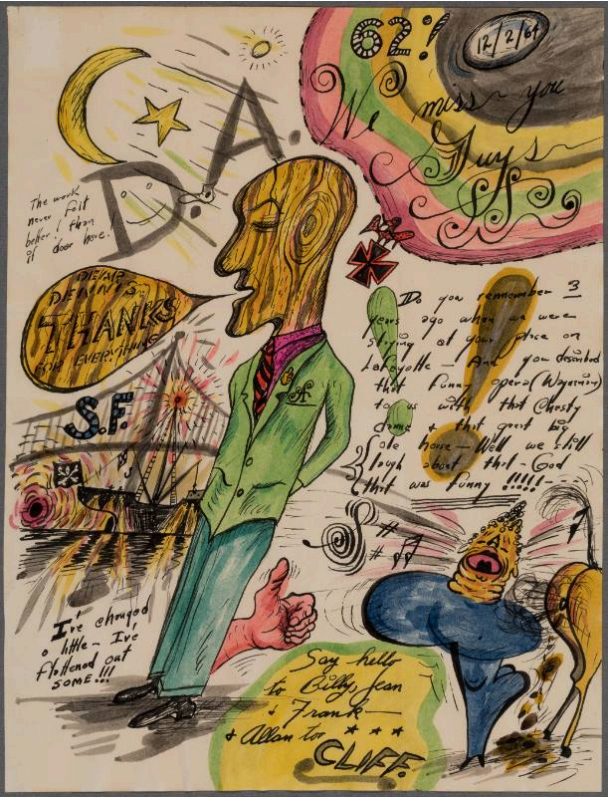 62!!
12/2/64
We miss you
Guys
D.A.
The work
never felt
better! than
it does here!
DEAR
DENNIS
THANKS
FOR EVERYTHING
S.F.
Do you remember 3
years ago when we were
staying at your place on
Lafayette – And you described
that funny opera (Wagnerian)
to us with that Chesty
dame & that great big
ole horse – Well we still
laugh about that – God
that was funny !!!!!
I've changed
a little – I've
flattened out
SOME!!!
Say hello
to Billy, Jean
& Frank
& Allan too
CLIFF.